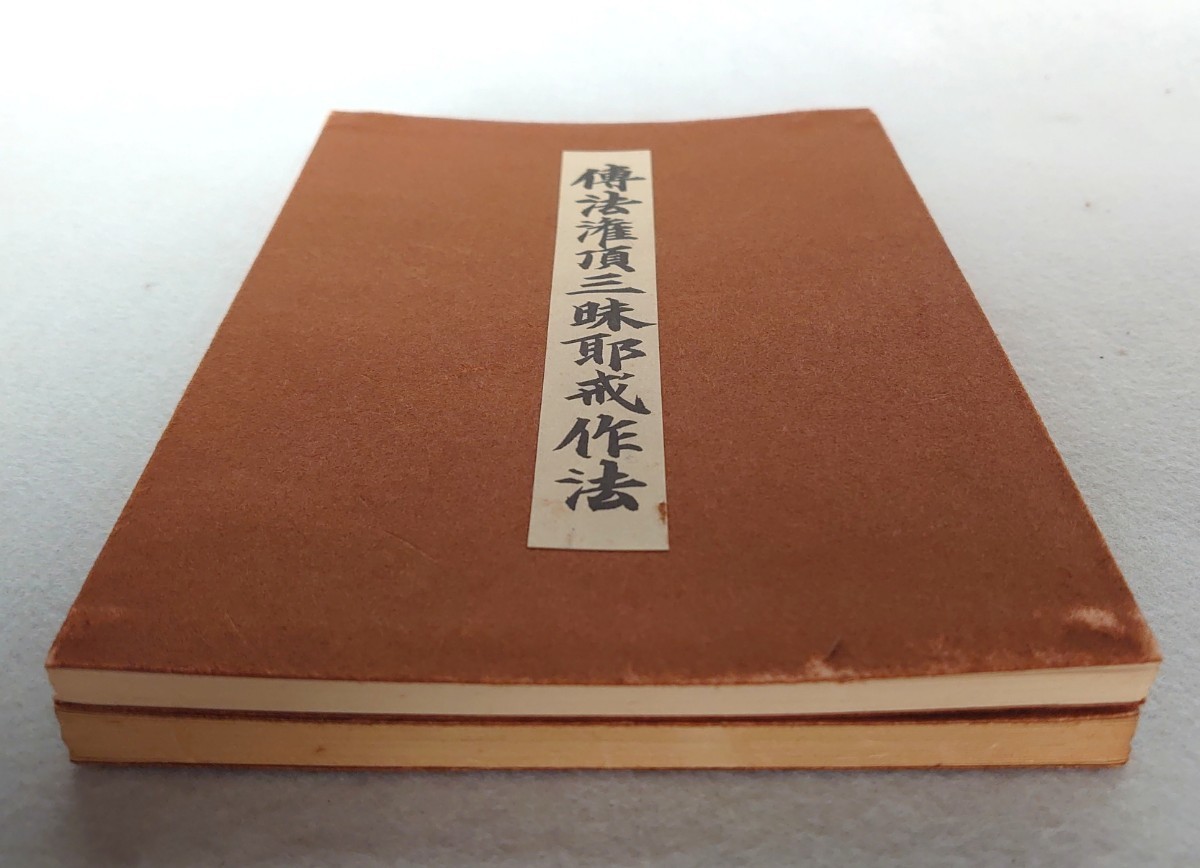 傳法潅頂三昧耶戒作法